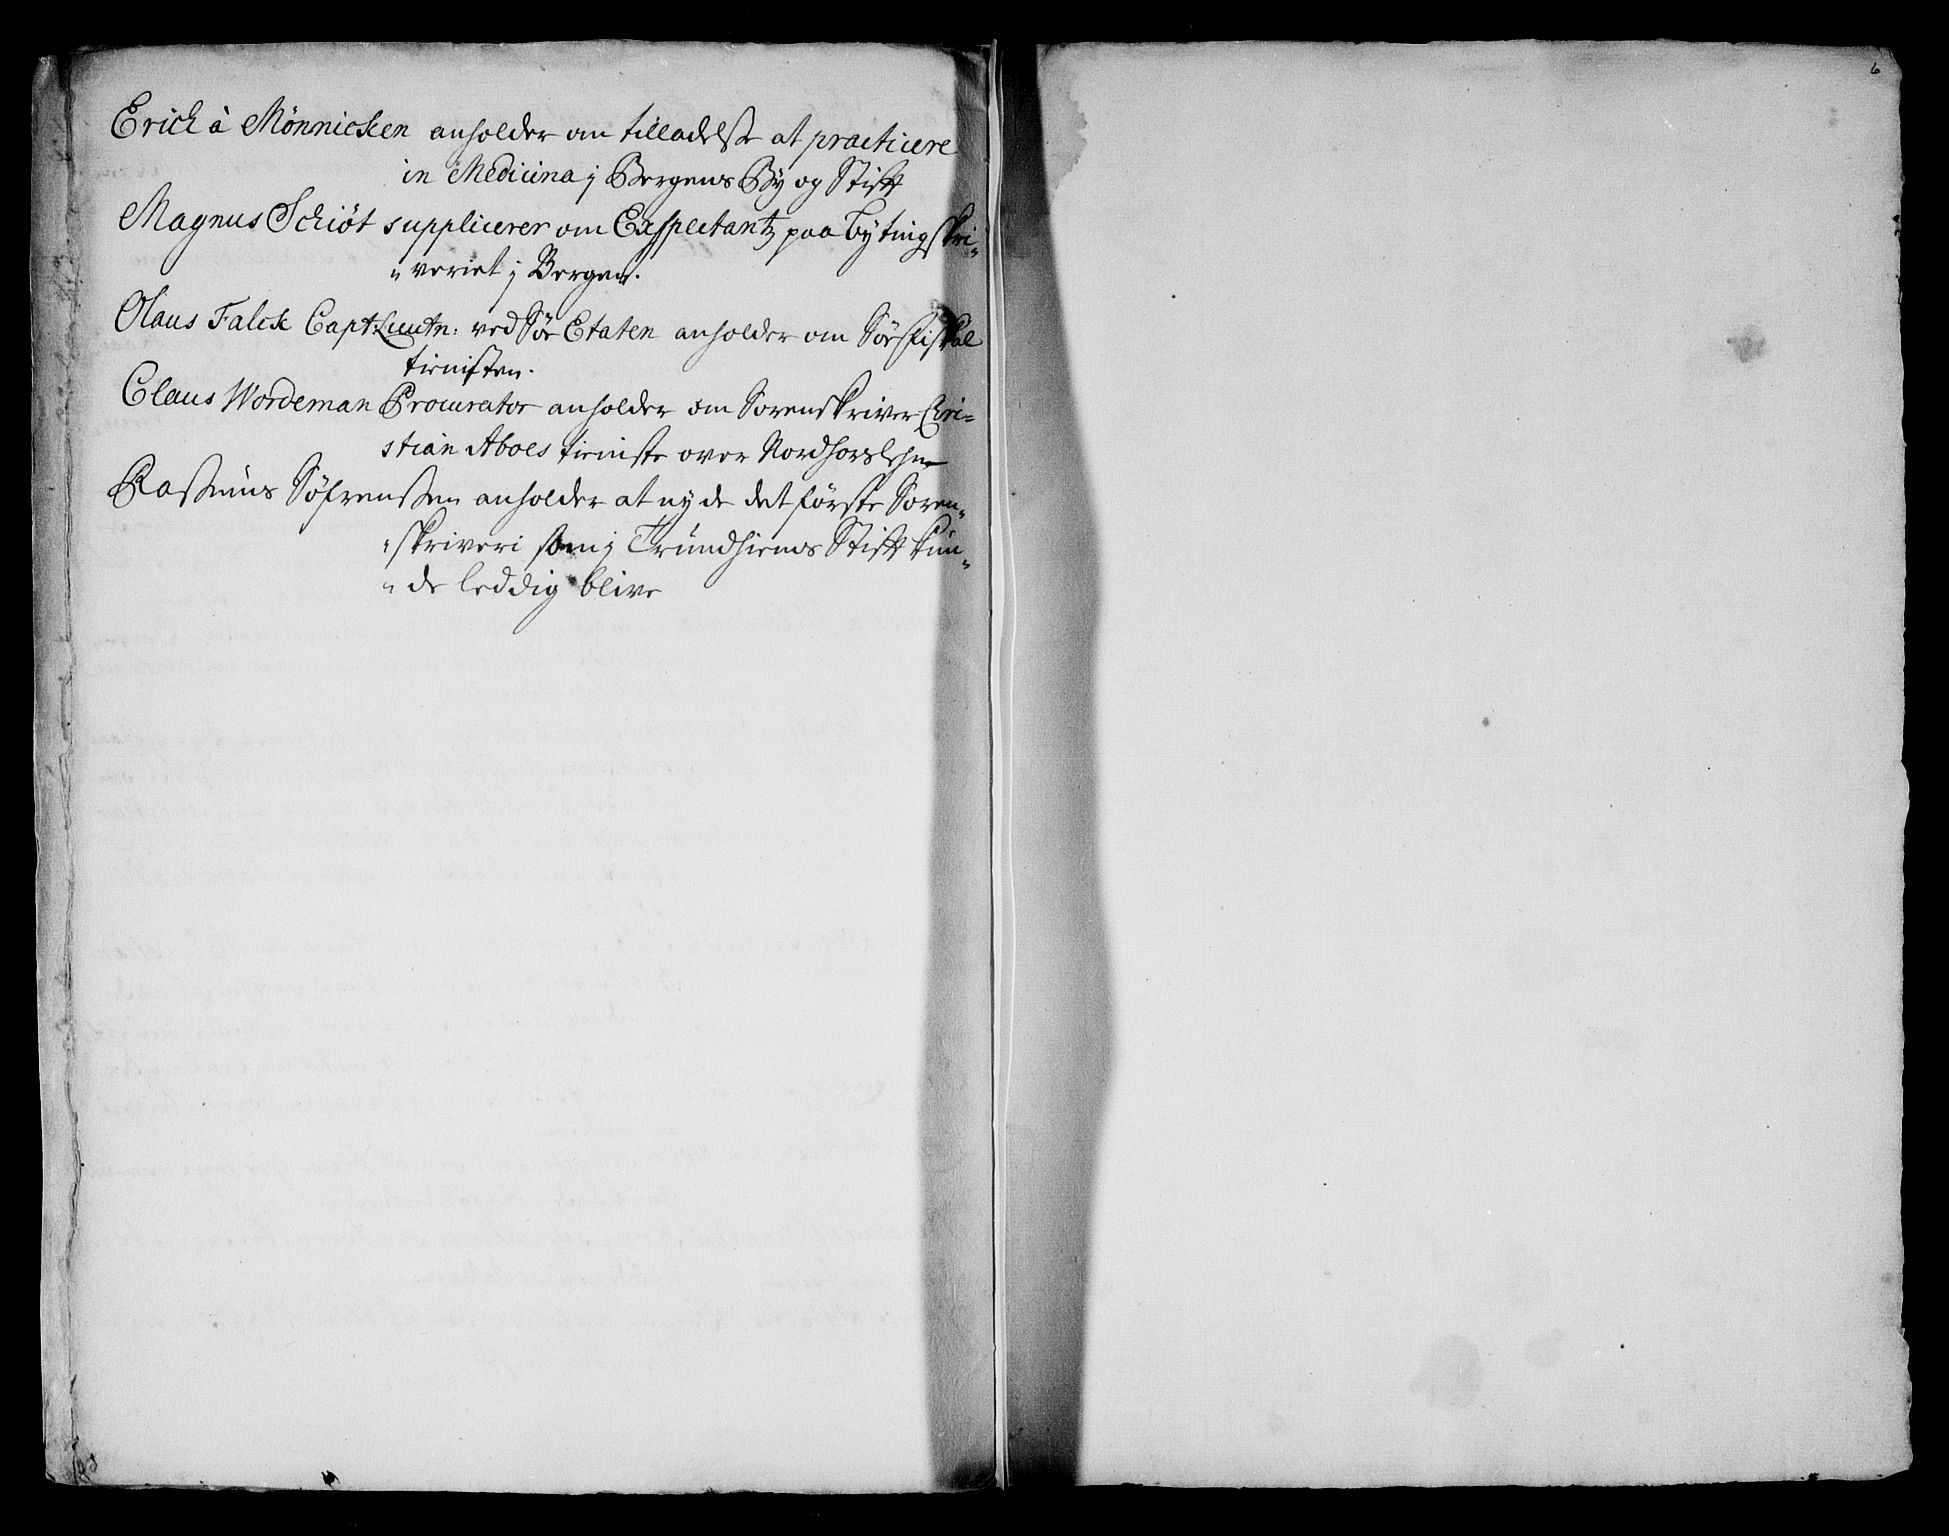 Erich à Mønnichen anholder om tilladelse at practicere
in Medicina j Bergens By og Stift
Magnus Schiøt supplicerer om Exspectantz paa Bytingskri-
-veriet j Bergen.
Olaus Falck Capt: Lieutn: ved Søe Etaten anholder om Søe Fiskal
tienisten.
Claus Wordeman Procurator anholder om Sorenskriver Chri-
stian Aboes tieniste over Nordhorslehn
Rasmus Søfrensen anholder at nyde det første Soren-
-skriveri som j Trundhiems Stift kun-
-de leddig blive
6